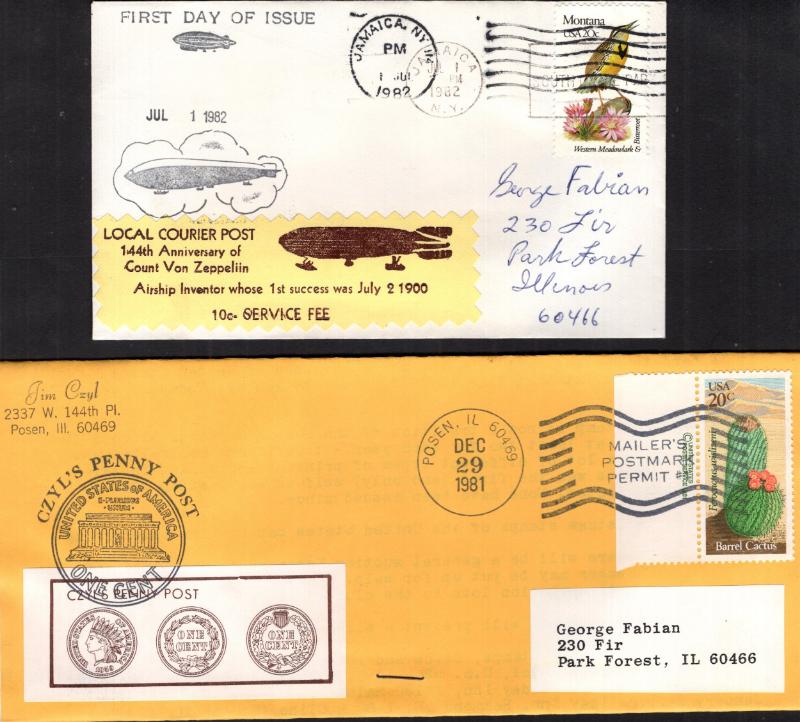 FIRST DAY OF ISSUE
JAMAICA, NY 114
PM
1 JUL
1982
JAMAICA
JUL 1
PM
1982
N.Y.
Montana
USA 20c
Western Meadowlark &
Bitterroot
JUL 1 1982
George Fabian
230 Fir
Park Forest
Illinois
60466
LOCAL COURIER POST
144th Anniversary of
Count Von Zeppeliin
Airship Inventor whose 1st success was July 2 1900
10c- SERVICE FEE
Jim Czyl
2337 W. 144th Pl.
Posen, Ill. 60469
CZYL'S PENNY POST
UNITED STATES OF AMERICA
E·PLURIBUS
UNUM
ONE CENT
POSEN, IL 60469
DEC
29
1981
MAILER'S
POSTMARK
PERMIT #
USA
20c
Barrel Cactus
CZYL'S PENNY POST
UNITED STATES OF AMERICA
ONE
CENT
ONE
CENT
George Fabian
230 Fir
Park Forest, IL 60466